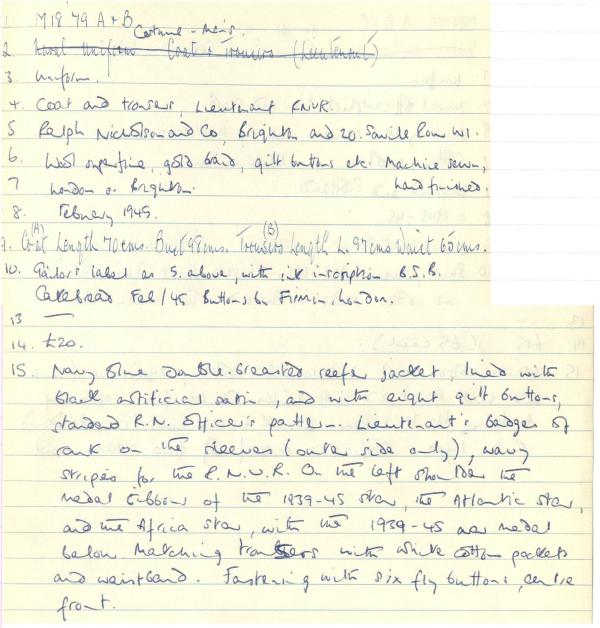 1 M18 '79 A+B Costume - Men's.
2. Naval Uniform Coat & Trousers (Lieutenant)
3. Uniform.
4. Coat and trousers, Lieutenant RNVR.
5 Ralph Nicholson and Co, Brighton and 20. Saville Row W1.
6. Wool superfine, gold braid, gilt buttons etc. Machine sewn,
7 London or Brighton. hand finished.
8. February 1945.
9. (A) Coat Length 70cms. Bust 98cms. (B) Trousers Length L. 97cms Waist 65cms.
10. Tailor's label as 5. above, with ink inscription B.S.B.
Cakebread Feb/45 Buttons by Firmin, London.
13 —
14. £20.
15. Navy Blue double-breasted reefer jacket, lined with
black artificial satin, and with eight gilt buttons,
standard R.N. Officer's pattern. Lieutenant's badges of
rank on the sleeves (outer side only), wavy
stripes for the R.N.V.R. On the left shoulder the
medal ribbons of the 1939-45 star, the Atlantic star,
and the Africa star, with the 1939-45 war medal
below. Matching trousers with white cotton pockets
and waistband. Fastening with six fly buttons, centre
front.